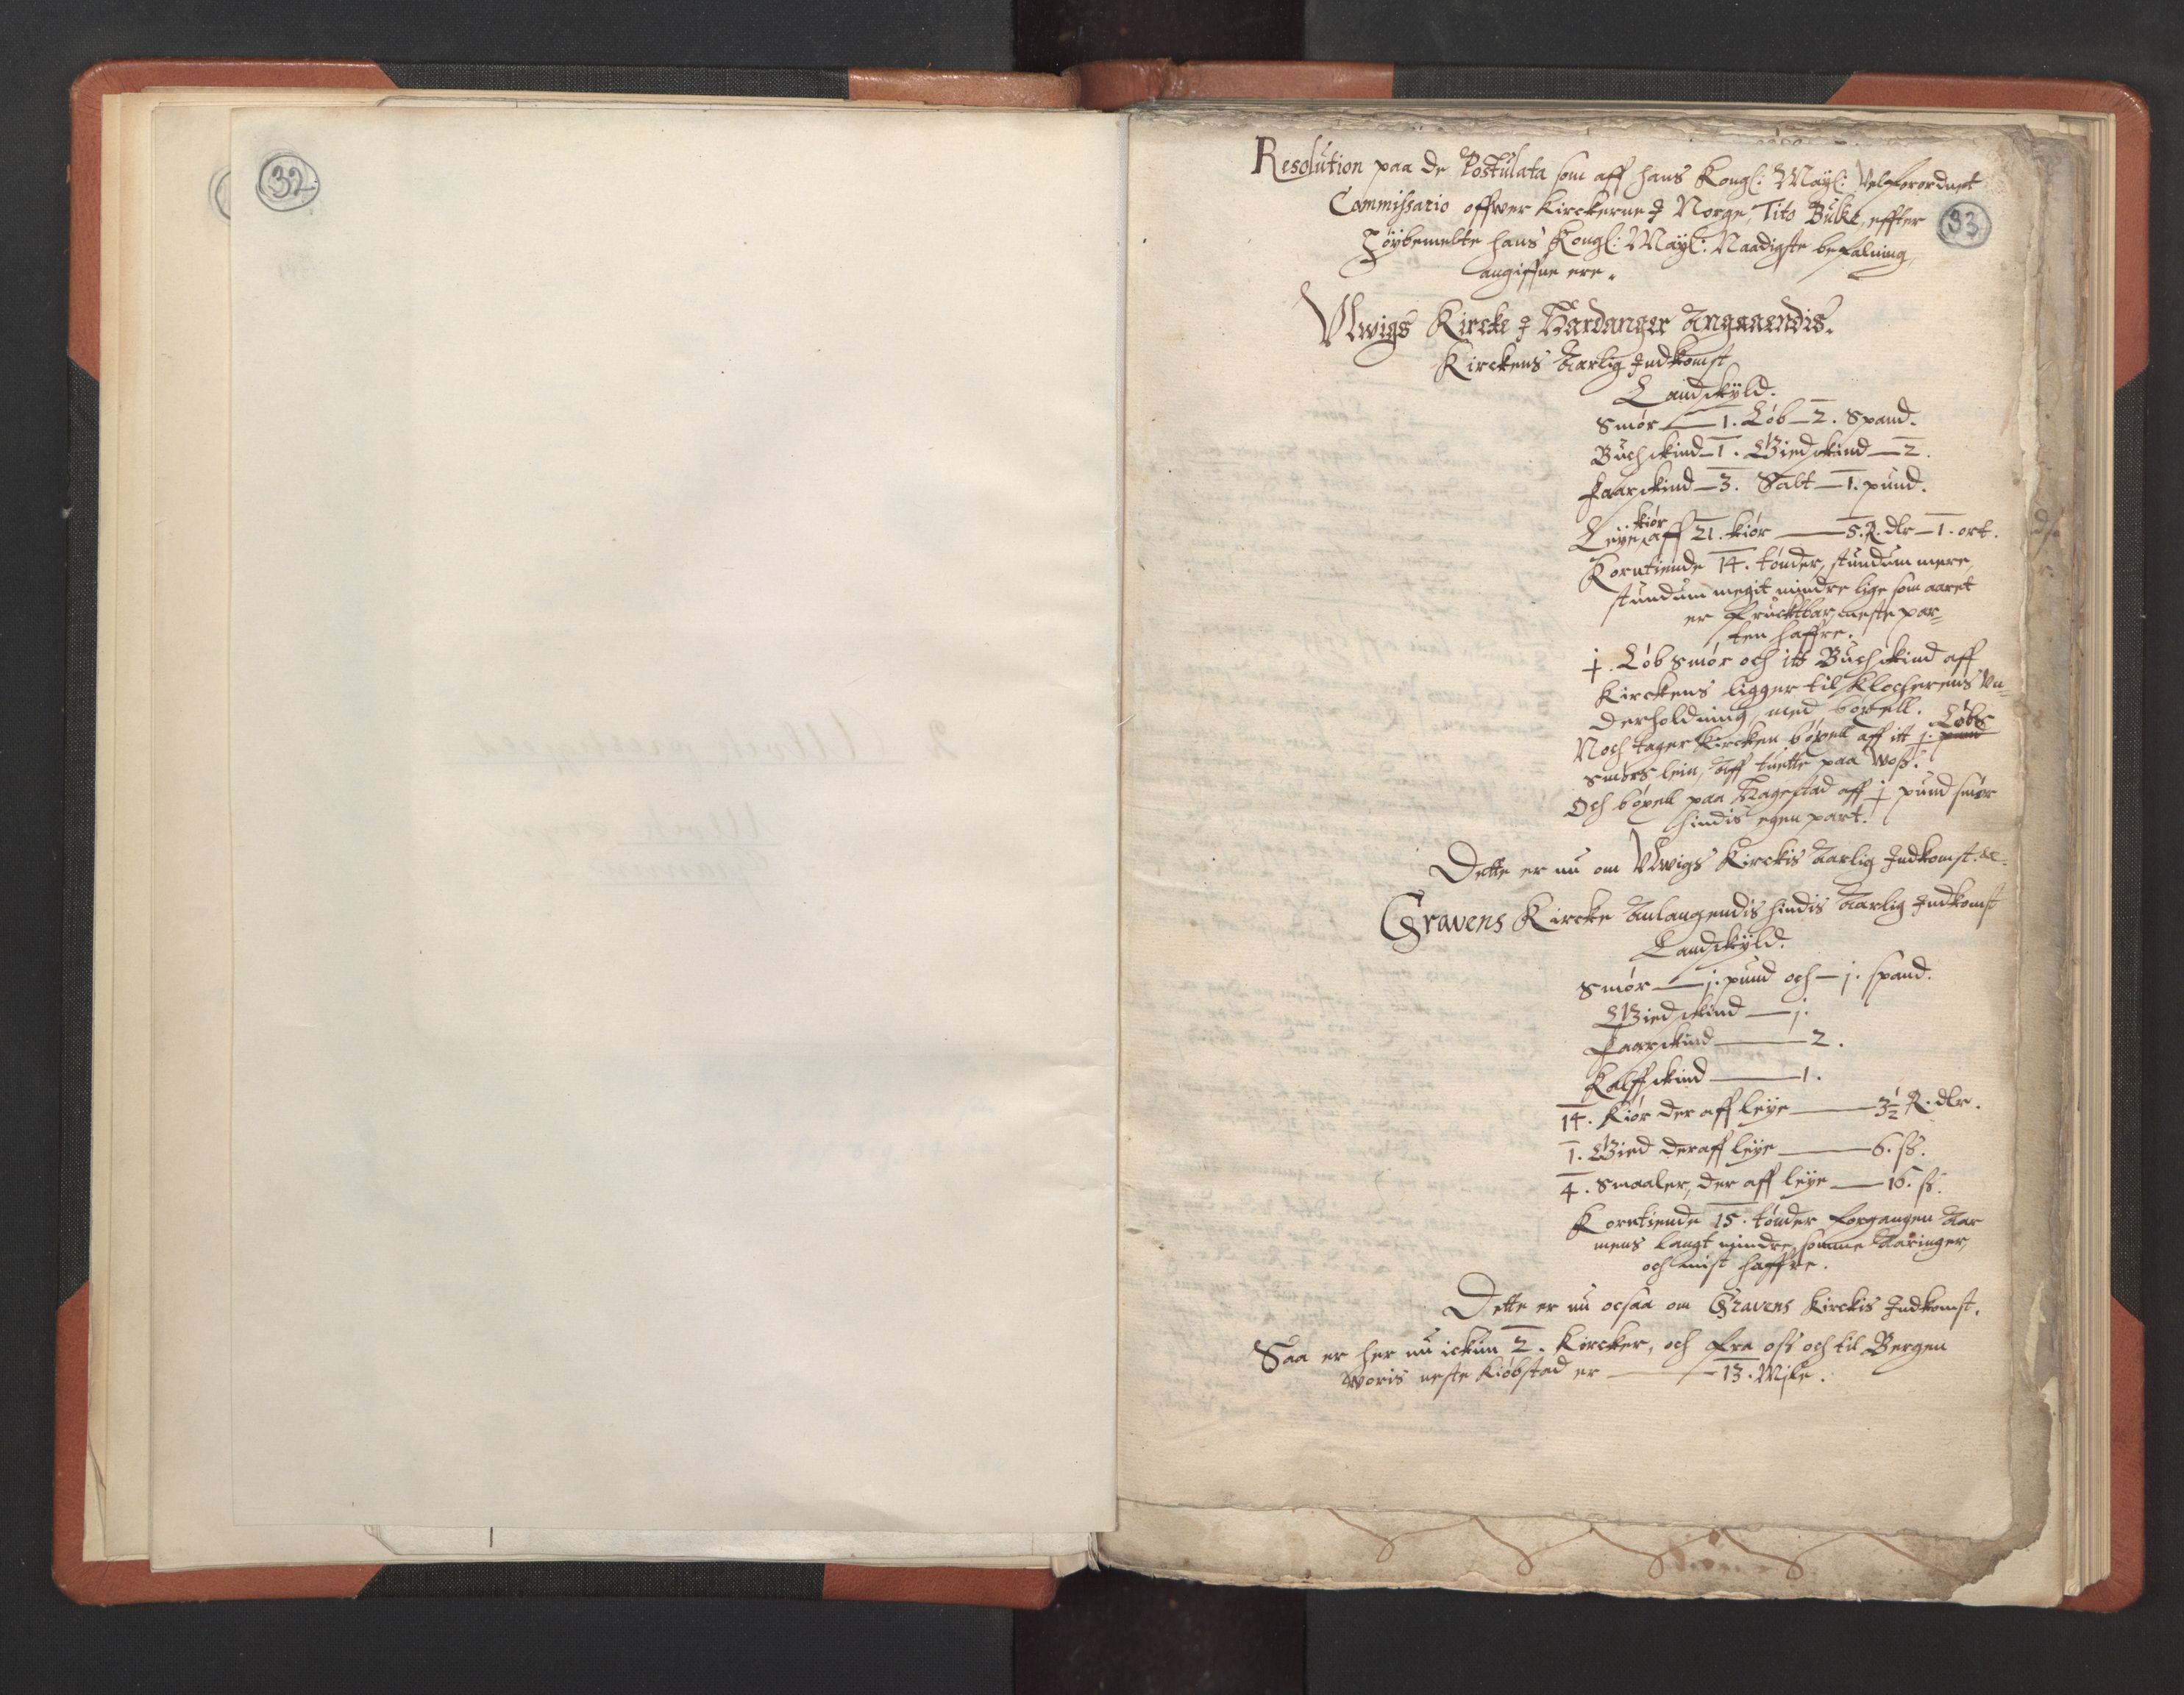 32
33
Resolution paa de Postulata som aff hans Kongl: Mayl: Velforordnet
Commissario offwer Kirckerne J Norge, Tito Bulke, effter
Höybemelte hans Kongl: Mayl: Naadigste befalning,
angiffne ere.
Vlwigs Kircke J Hardanger Angaaendis.
Kirckens Aarlig Indkomst
Landskÿld.
Smör — 1. Löb — 2. Spand.
Buchskind — 1. Giedskind — 2.
Faarskind — 3. Salt — 1. pund.
kiör
Leÿe aff 21. kiör — 5. R. dlr — 1. ort.
Korntiende 14. tönder, stundum mere,
stundum megit mindre lige som aaret
er fruchtbar, meste par-
ten haffre.
j. Löb smör och itt Buchskind aff
Kirckens ligger til Klocherens Vn-
derholdning, med böxell.
Löbs
Noch tager Kircken böxell aff itt j. pund
smörs lein, aff tuette paa Woss.
Och böxell paa Hagestad aff j pund smör
hindis egen part.
Dette er nu om Vlwigs Kirckis Aarlig Indkomst. &c.
Gravens Kircke Anlangendis hindis Aarlig Indkomst
Landskÿld.
Smör — j. pund och — j. spand.
Giedskind — j.
Faarskind — 2.
Kalffskind — 1.
14. Kiör der aff leÿe — 3½ R. dlr.
1. Gied deraff leÿe — 6. ß.
4. Smaaler, der aff leÿe — 16. ß.
Korntiende 15. tönder forgangen Aar
mens langt mindre somme Aaringer,
och mist haffre.
Dette er nu ocsaa om Gravens Kirckis Indkomst.
Saa er her nu ickun 2. Kircker, och fra oss och til Bergen
woris neste Kiöbstad er — 13. Mile.